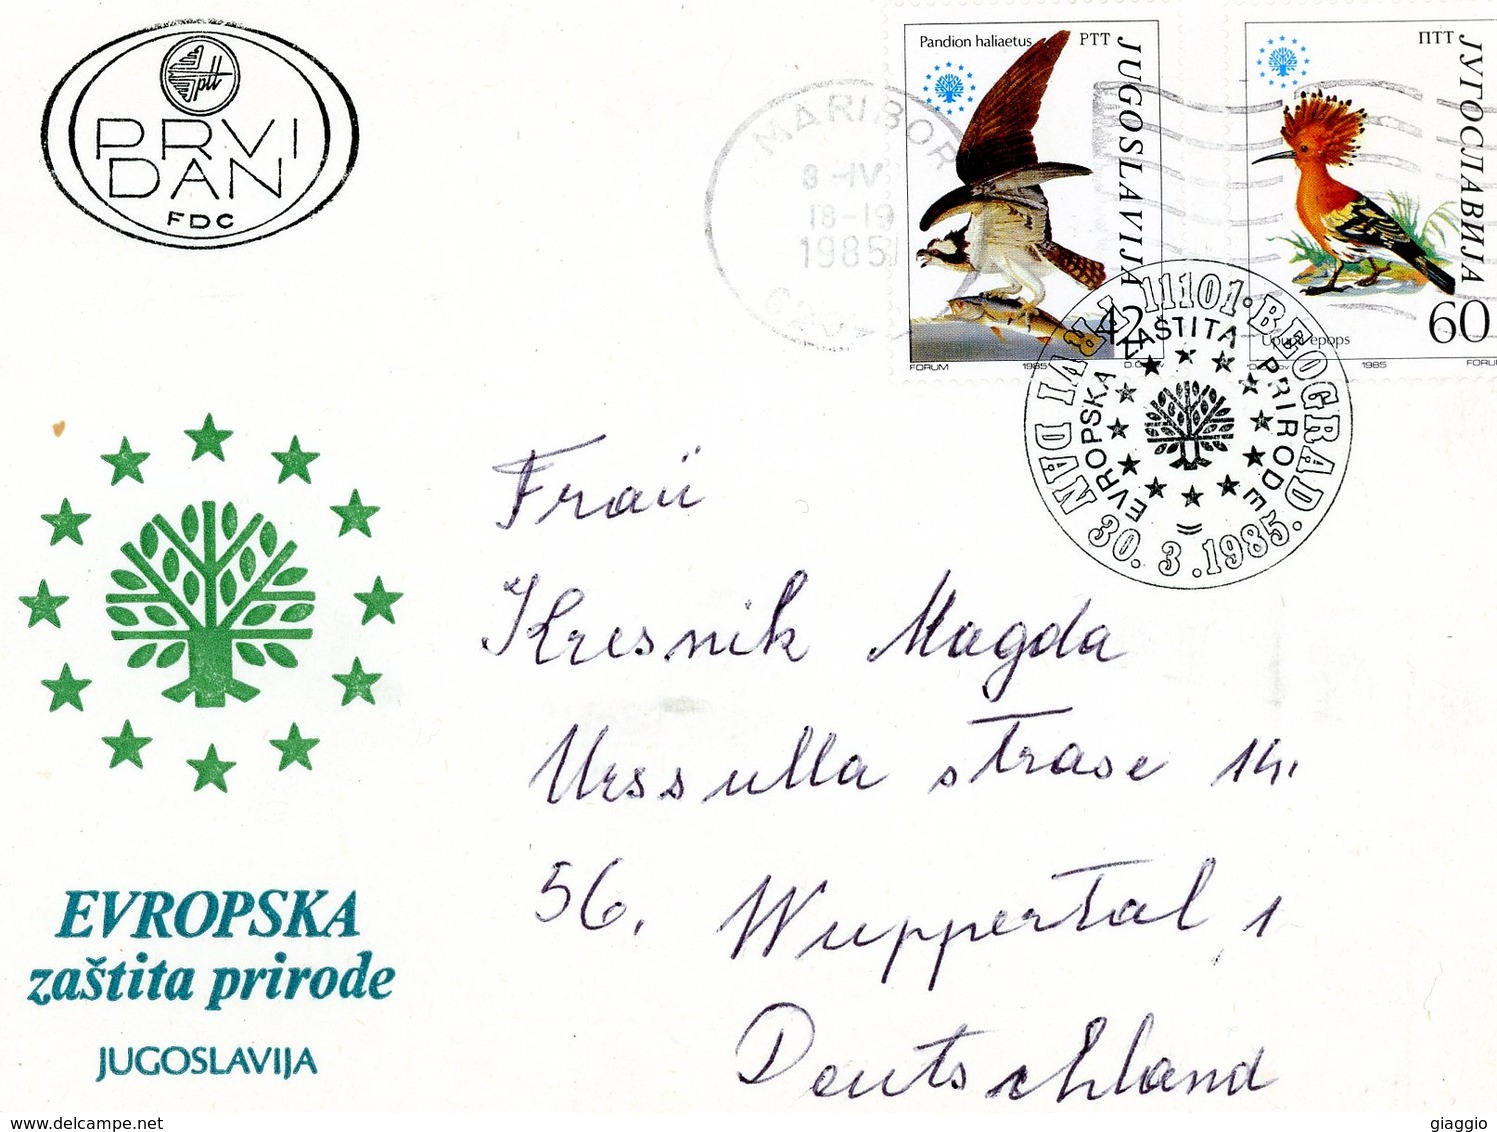 ptt
PRVI
DAN
FDC
MARIBOR
8-IV
18-19
1985
Pandion haliaetus
PTT
JUGOSLAVIJA
42
FORUM
1985
ПТТ
ЈУГОСЛАВИЈА
Upupa epops
60
1985
FORUM
PRVI DAN 11101 · BEOGRAD ·
30.3.1985
EVROPSKA ZAŠTITA PRIRODE
Fraü
Kresnik Magda
Urssulla strase 14.
56. Wuppertal 1
Deutschland
EVROPSKA
zaštita prirode
JUGOSLAVIJA
www.delcampe.net
giaggio